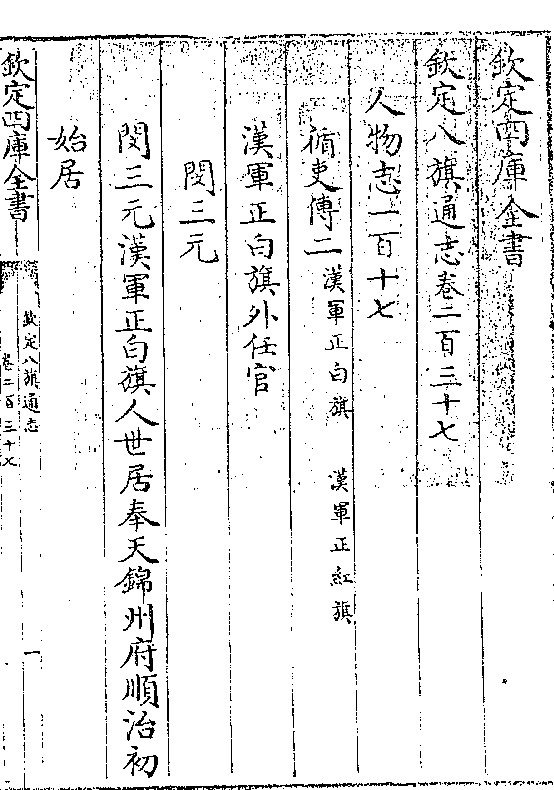 欽定四庫全書
欽定八旗通志卷二百三十七
人物志一百十七
循吏傳二漢軍正白旗 漢軍正紅旗
漢軍正白旗外任官
閔三元
閔三元漢軍正白旗人世居奉天錦州府順治初
始居
欽定四庫全書
欽定八旗通志
卷二百三十七
一